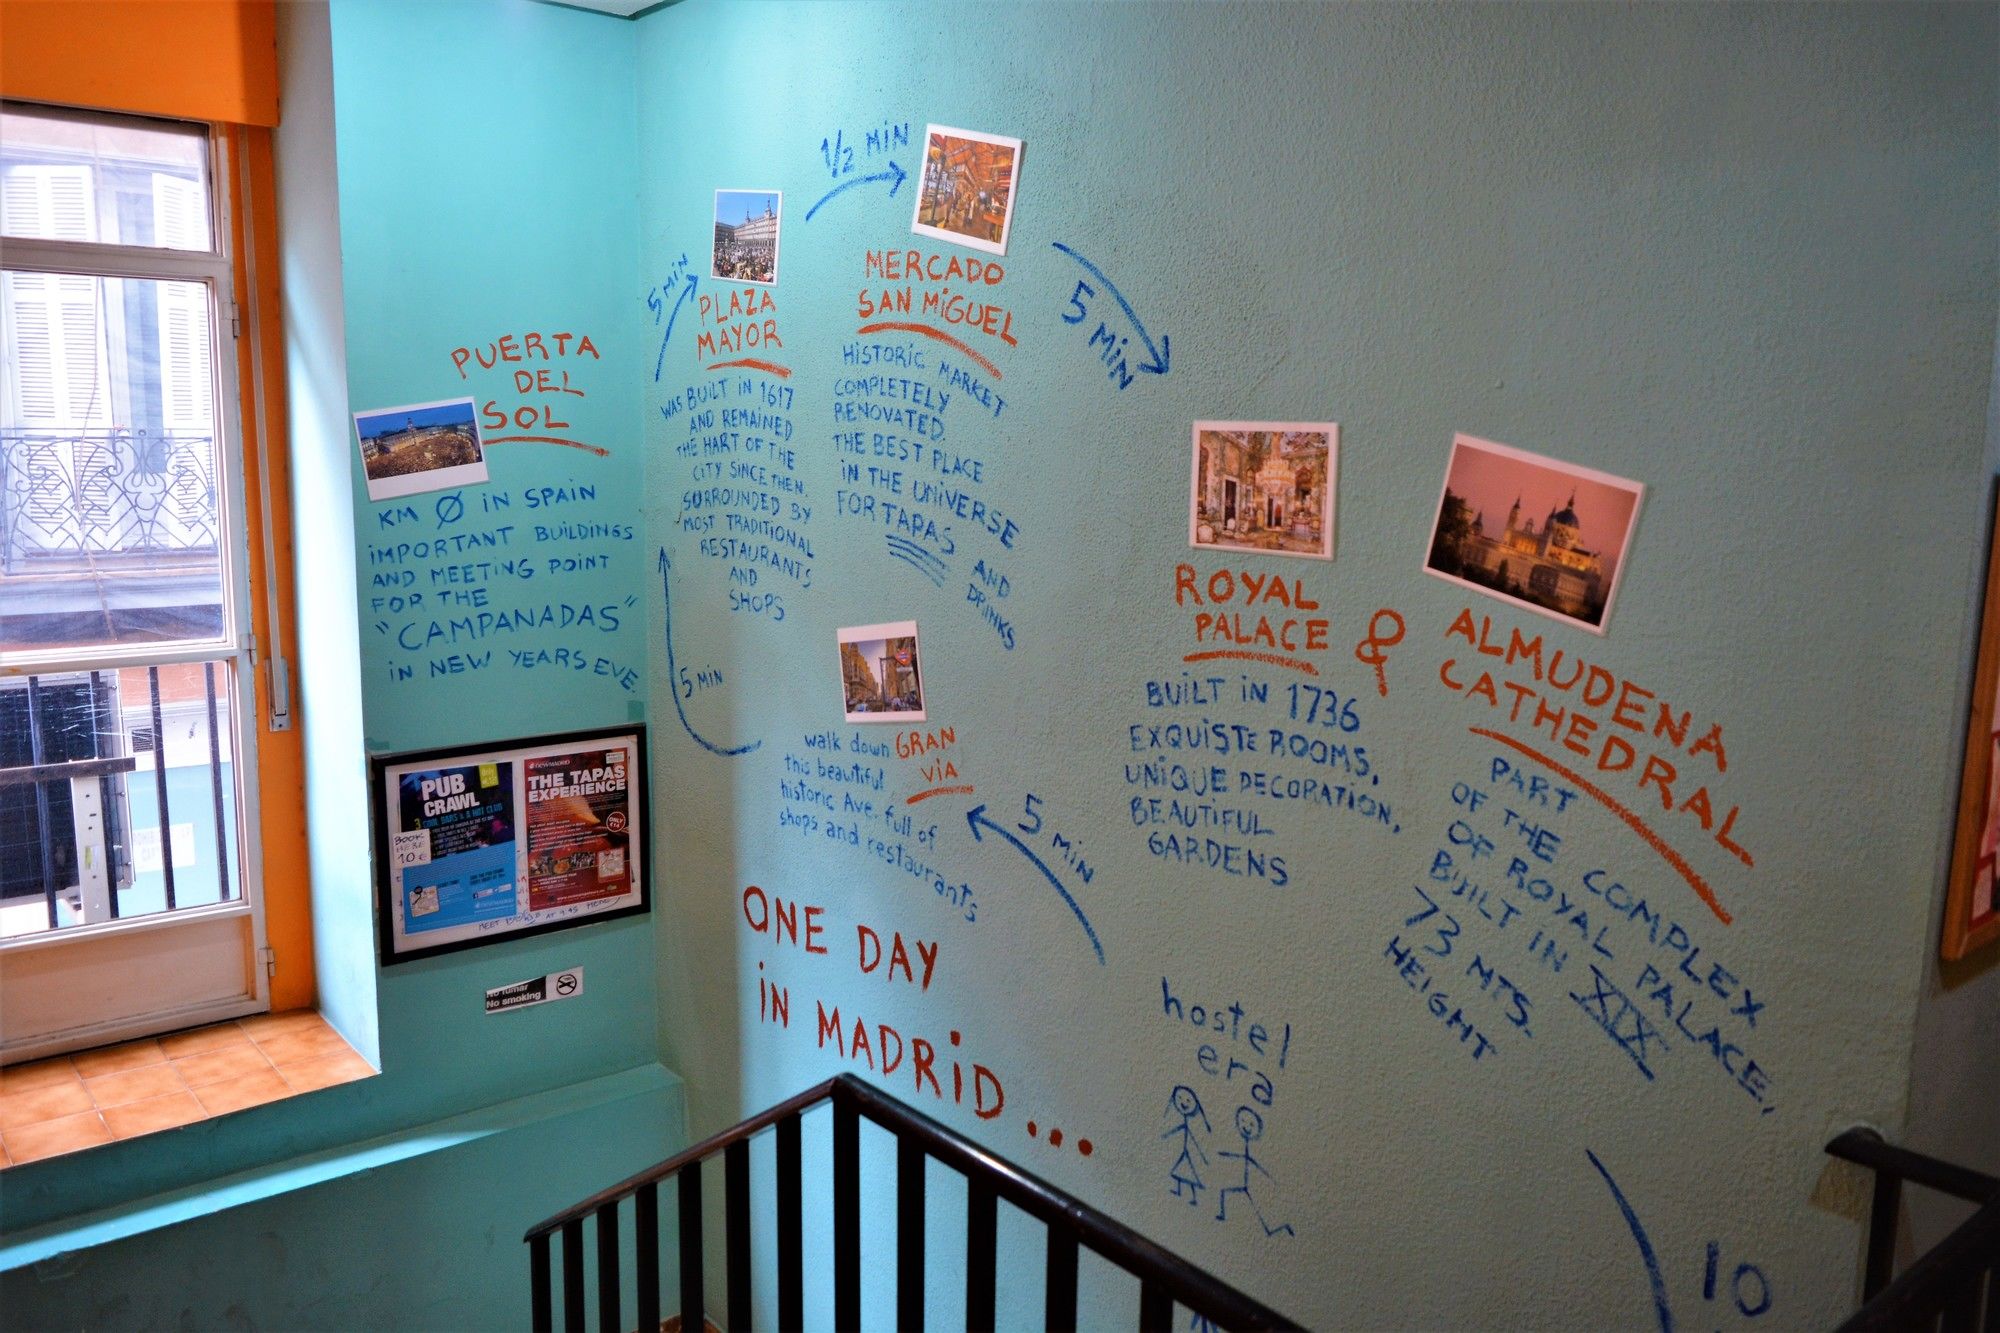 PUERTA
DEL
SOL
KM Ø IN SPAIN
IMPORTANT BUILDINGS
AND MEETING POINT
FOR THE
"CAMPANADAS"
IN NEW YEARS EVE.
5 MIN
PLAZA
MAYOR
WAS BUILT IN 1617
AND REMAINED
THE HART OF THE
CITY SINCE THEN.
SURROUNDED BY
MOST TRADITIONAL
RESTAURANTS
AND
SHOPS
1/2 MIN
MERCADO
SAN MIGUEL
HISTORIC MARKET
COMPLETELY
RENOVATED.
THE BEST PLACE
IN THE UNIVERSE
FOR TAPAS AND
DRINKS
5 MIN
ROYAL
PALACE &
BUILT IN 1736
EXQUISTE ROOMS,
UNIQUE DECORATION,
BEAUTIFUL
GARDENS
ALMUDENA
CATHEDRAL.
PART
OF THE COMPLEX
OF ROYAL PALACE,
BUILT IN XIX
73 MTS.
HEIGHT
5 MIN
walk down GRAN
VIA
this beautiful
historic Ave. full of
shops and restaurants
5 MIN
ONE DAY
IN MADRID...
hostel
era
10
PUB
CRAWL
BOOK
HERE
10€
NEWMADRID
THE TAPAS
EXPERIENCE
ONLY
MEET AT 9:45
No fumar
No smoking